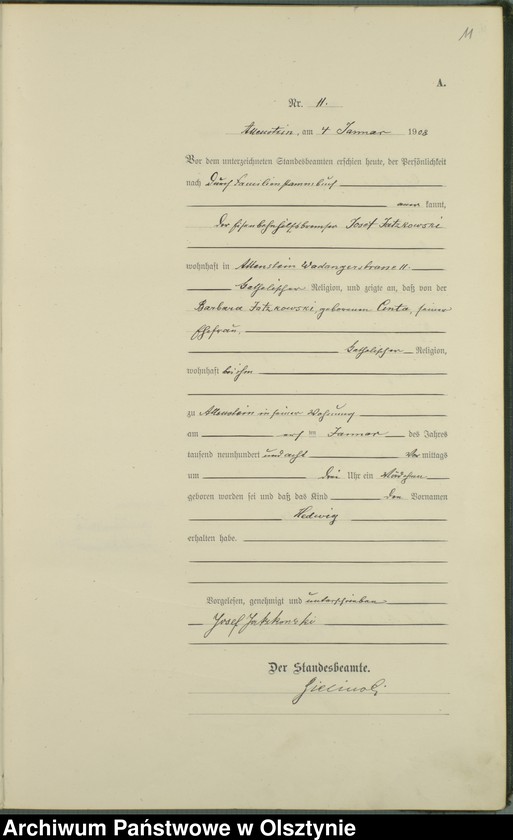 11
A.
Nr. 11.
Allenstein, am 4 Januar 1908
Vor dem unterzeichneten Standesbeamten erschien heute, der Persönlichkeit
nach durch Familienstammbuch
aner kannt,
der Eisenbahnhilfsbremser Josef
wohnhaft in Allenstein Wadangerstrasse 11
katholischer Religion, und zeigte an, daß von der
Barbara geborenen seiner
Ehefrau,
katholischer Religion,
wohnhaft bei ihm
zu Allenstein in seiner Wohnung
am ten Januar des Jahres
tausend neunhundert und acht Vor mittags
um drei Uhr ein Mädchen
geboren worden sei und daß das Kind den Vornamen
Hedwig
erhalten habe.
Vorgelesen, genehmigt und unterschrieben
Josef
Der Standesbeamte.
Archiwum Państwowe w Olsztynie